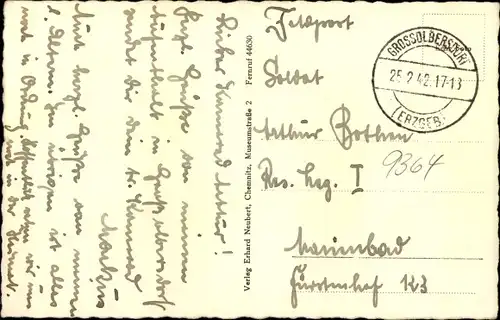 Lieber Kamerad Arthur!
Herzl. Grüße von meinem
Aufenthalt in Großolbersdorf
sendet dir dein tr. Kamerad
Markus
Auch herzl. Grüße von meinen
l. Eltern. Im übrigen ist alles
noch in Ordnung. Hoffentlich sehen wir uns
in der Heimat.
Verlag Erhard Neubert, Chemnitz, Museumstraße 2 Fernruf 44630
Feldpost
GROSSOLBERSDORF
25.2.42.17-18
(ERZGEB.)
Soldat
Arthur Bothen
9364
Res. Laz. I
Marienbad
Fürstenhof 123